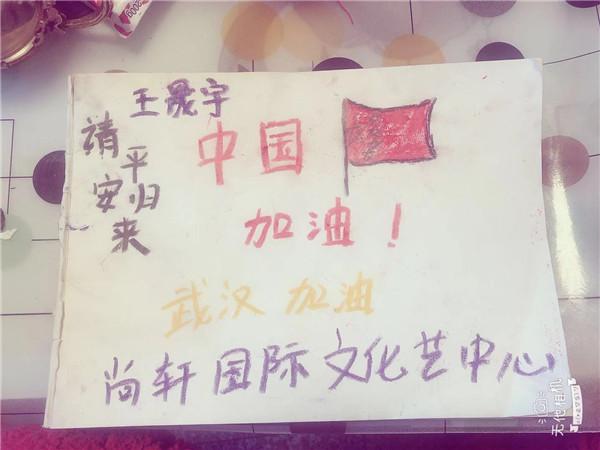 王晟宇
请平安归来
中国
加油！
武汉加油
尚轩国际文化艺中心
无他相机